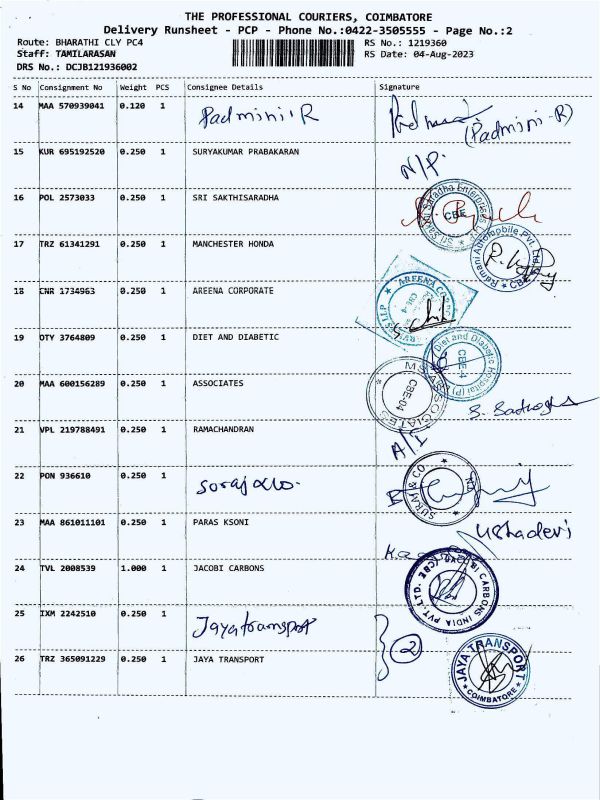 THE PROFESSIONAL COURIERS, COIMBATORE
Delivery Runsheet - PCP - Phone No.:0422-3505555 - Page No.:2
Route: BHARATHI CLY PC4
RS No.: 1219360
Staff: TAMILARASAN
RS Date: 04-Aug-2023
DRS No.: DCJB121936002
S No Consignment No Weight PCS Consignee Details Signature
14 MAA 570939041 0.120 1 Padmini R
(Padmini-R)
15 KUR 695192520 0.250 1 SURYAKUMAR PRABAKARAN N/P.
16 POL 2573033 0.250 1 SRI SAKTHISARADHA
Sri Sakthi Saradha Enterprises CBE
17 TRZ 61341291 0.250 1 MANCHESTER HONDA
Ramani Automobile Pvt. CBE
18 CNR 1734963 0.250 1 AREENA CORPORATE
AREENA CORPORATE LLP CBE-4
19 OTY 3764809 0.250 1 DIET AND DIABETIC
Diet and Diabetic Hospital (P) CBE-4
20 MAA 600156289 0.250 1 ASSOCIATES
MS ASSOCIATES CBE-04
21 VPL 219788491 0.250 1 RAMACHANDRAN A/I
22 PON 936610 0.250 1
SURAJ & CO
23 MAA 861011101 0.250 1 PARAS KSONI Ushadevi
24 TVL 2008539 1.000 1 JACOBI CARBONS
JACOBI CARBONS INDIA PVT. LTD. (CBE)
25 IXM 2242510 0.250 1 Jayatransport
2
26 TRZ 365091229 0.250 1 JAYA TRANSPORT
JAYA TRANSPORT COIMBATORE